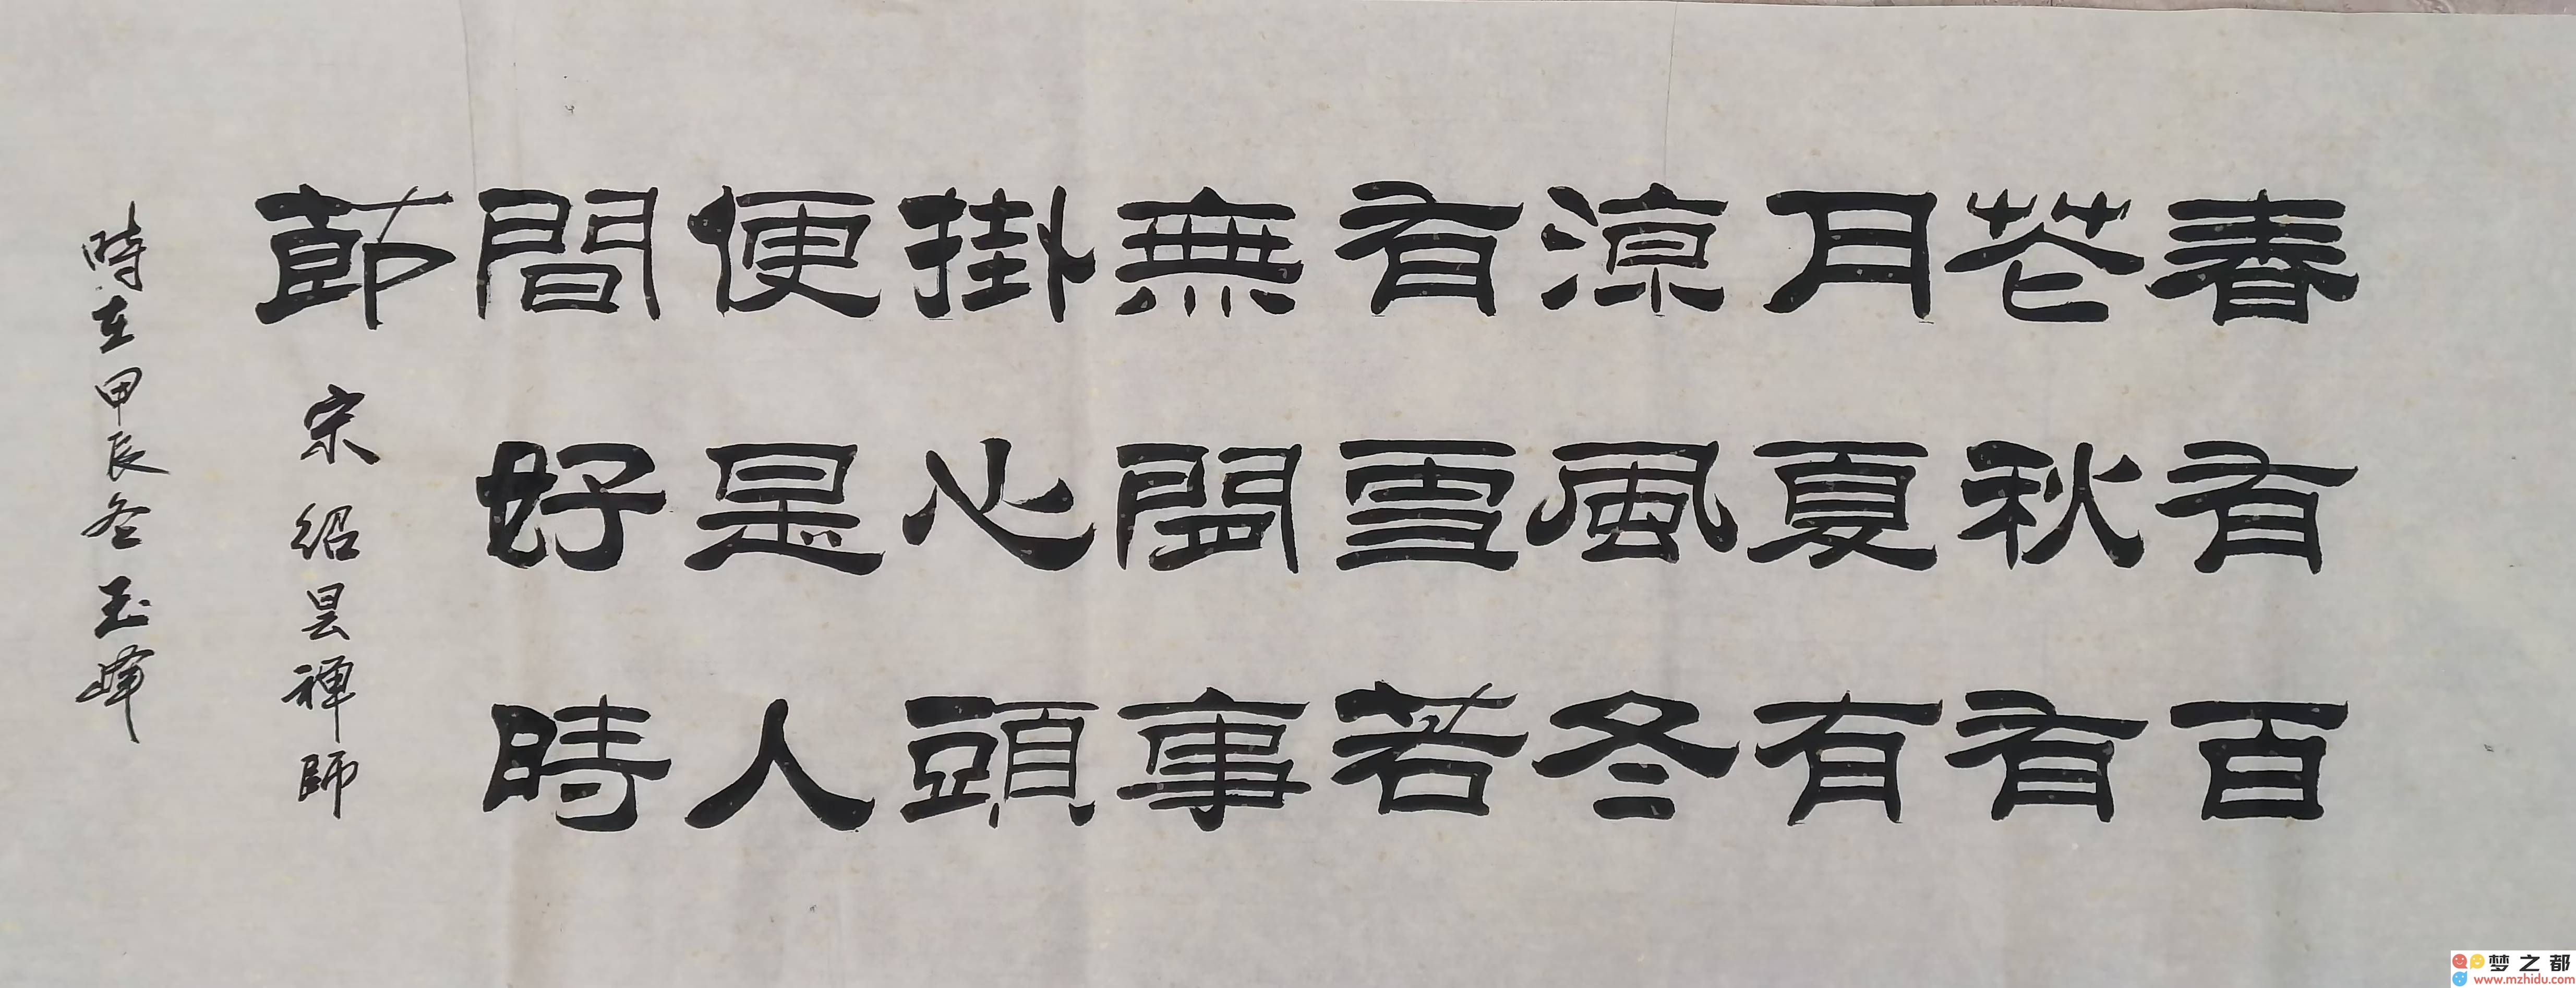 春有百
花秋有
月夏有
涼風冬
有雪若
無閒事
掛心頭
便是人
間好時
節 宋紹昙禪師
時在甲辰冬玉峰
梦之都
www.mzhidu.com